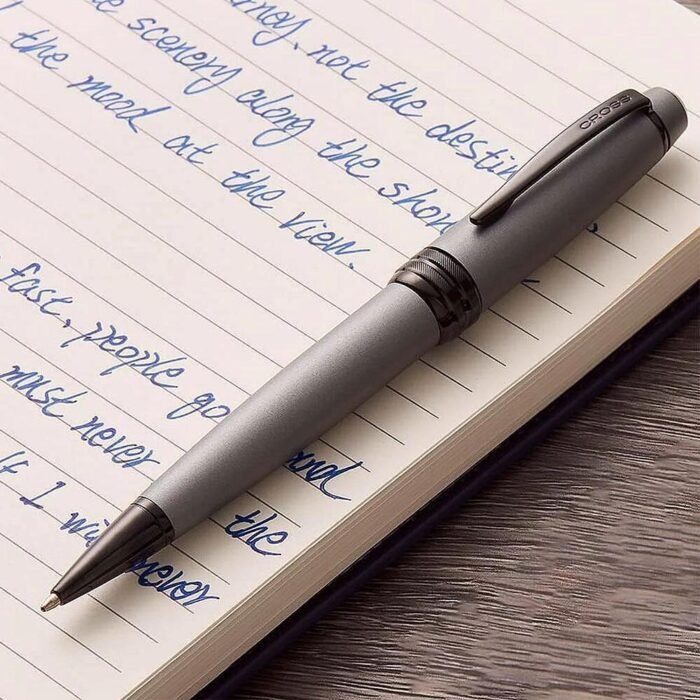 rney, not the destin
e scenery along the shor
the mood at the view.
fast, people go
ood
must never the
If I will never
never
CROSS